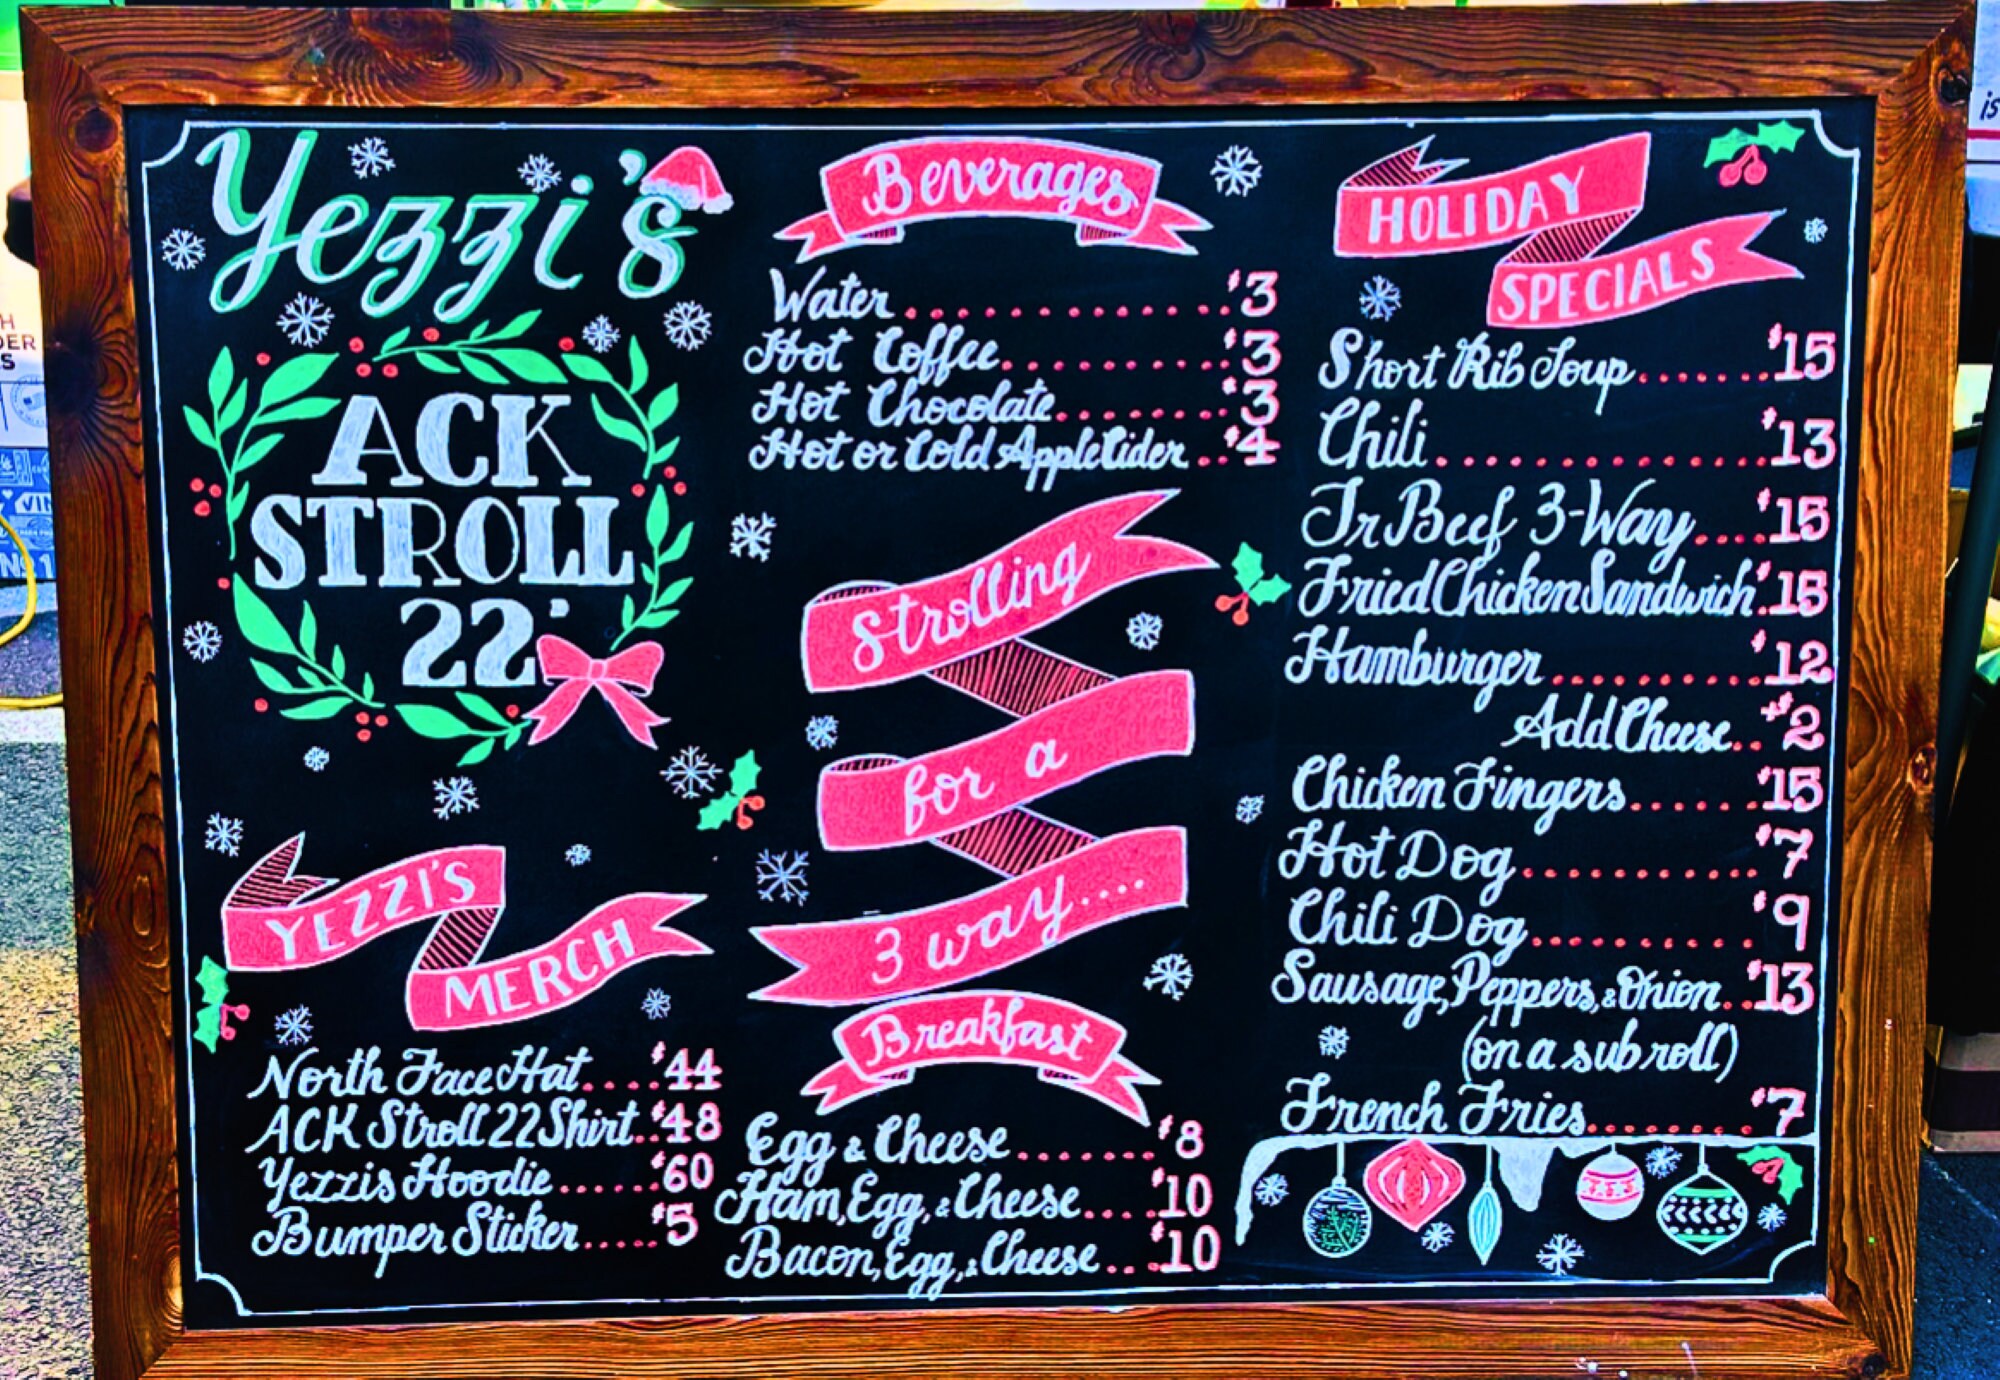 Yezzi's
ACK
STROLL
22'
YEZZI'S
MERCH
North Face Hat....$44
ACK Stroll 22 Shirt..$48
Yezzis Hoodie......$60
Bumper Sticker.....$5
Beverages
Water............$3
Hot Coffee.........$3
Hot Chocolate.......$3
Hot or Cold Apple Cider..$4
Strolling
for a
3 way...
Breakfast
Egg & Cheese.......$8
Ham, Egg, & Cheese....$10
Bacon, Egg, & Cheese...$10
HOLIDAY
SPECIALS
Short Rib Soup......$15
Chili............$13
Jr Beef 3-Way....$15
Fried Chicken Sandwich.$15
Hamburger..........$12
Add Cheese..+$2
Chicken Fingers......$15
Hot Dog...........$7
Chili Dog..........$9
Sausage, Peppers, & Onion..$13
(on a sub roll)
French Fries.......$7
is